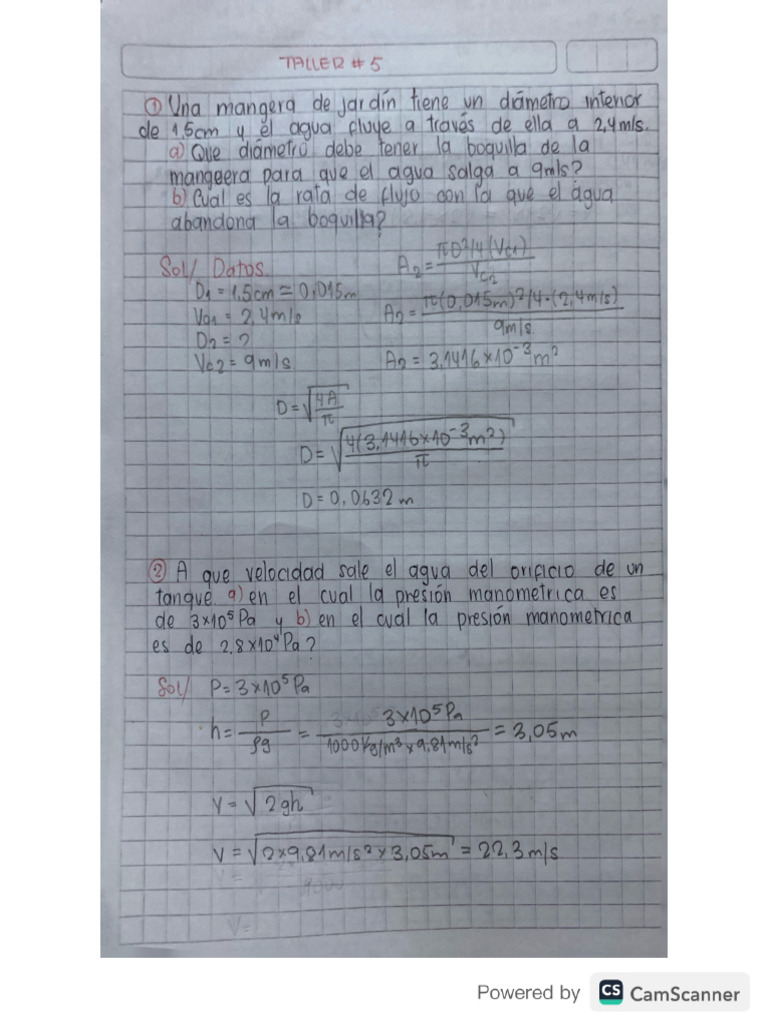 TALLER # 5
① Una mangera de jardín tiene un diámetro interior
de 1,5cm y el agua fluye a través de ella a 2,4m/s.
a) Que diámetro debe tener la boquilla de la
mangeera para que el agua salga a 9m/s?
b) Cual es la rata de flujo con la que el água
abandona la boquilla?
Sol/ Datos
D₁ = 1,5cm = 0,015m
Vc₁ = 2,4m/s
D₂ = ?
Vc2 = 9m/s
A₂ = πD²/4 (Vc₁) / Vc₂
A₂ = π(0,015m)²/4·(2,4m/s) / 9m/s
A₂ = 3,1416×10⁻³m²
D = √4A/π
D = √4(3,1416×10⁻³m²)/π
D = 0,0632 m
② A que velocidad sale el agua del orificio de un
tanque a) en el cual la presión manometrica es
de 3×10⁵ Pa y b) en el cual la presión manometrica
es de 2,8×10⁴ Pa?
Sol/ P = 3×10⁵ Pa
h = P/ρg = 3×10⁵ Pa / 1000 Kg/m³ × 9,81m/s² = 3,05m
V = √2gh
V = √2×9,81m/s² × 3,05m = 22,3m/s
Powered by CS CamScanner